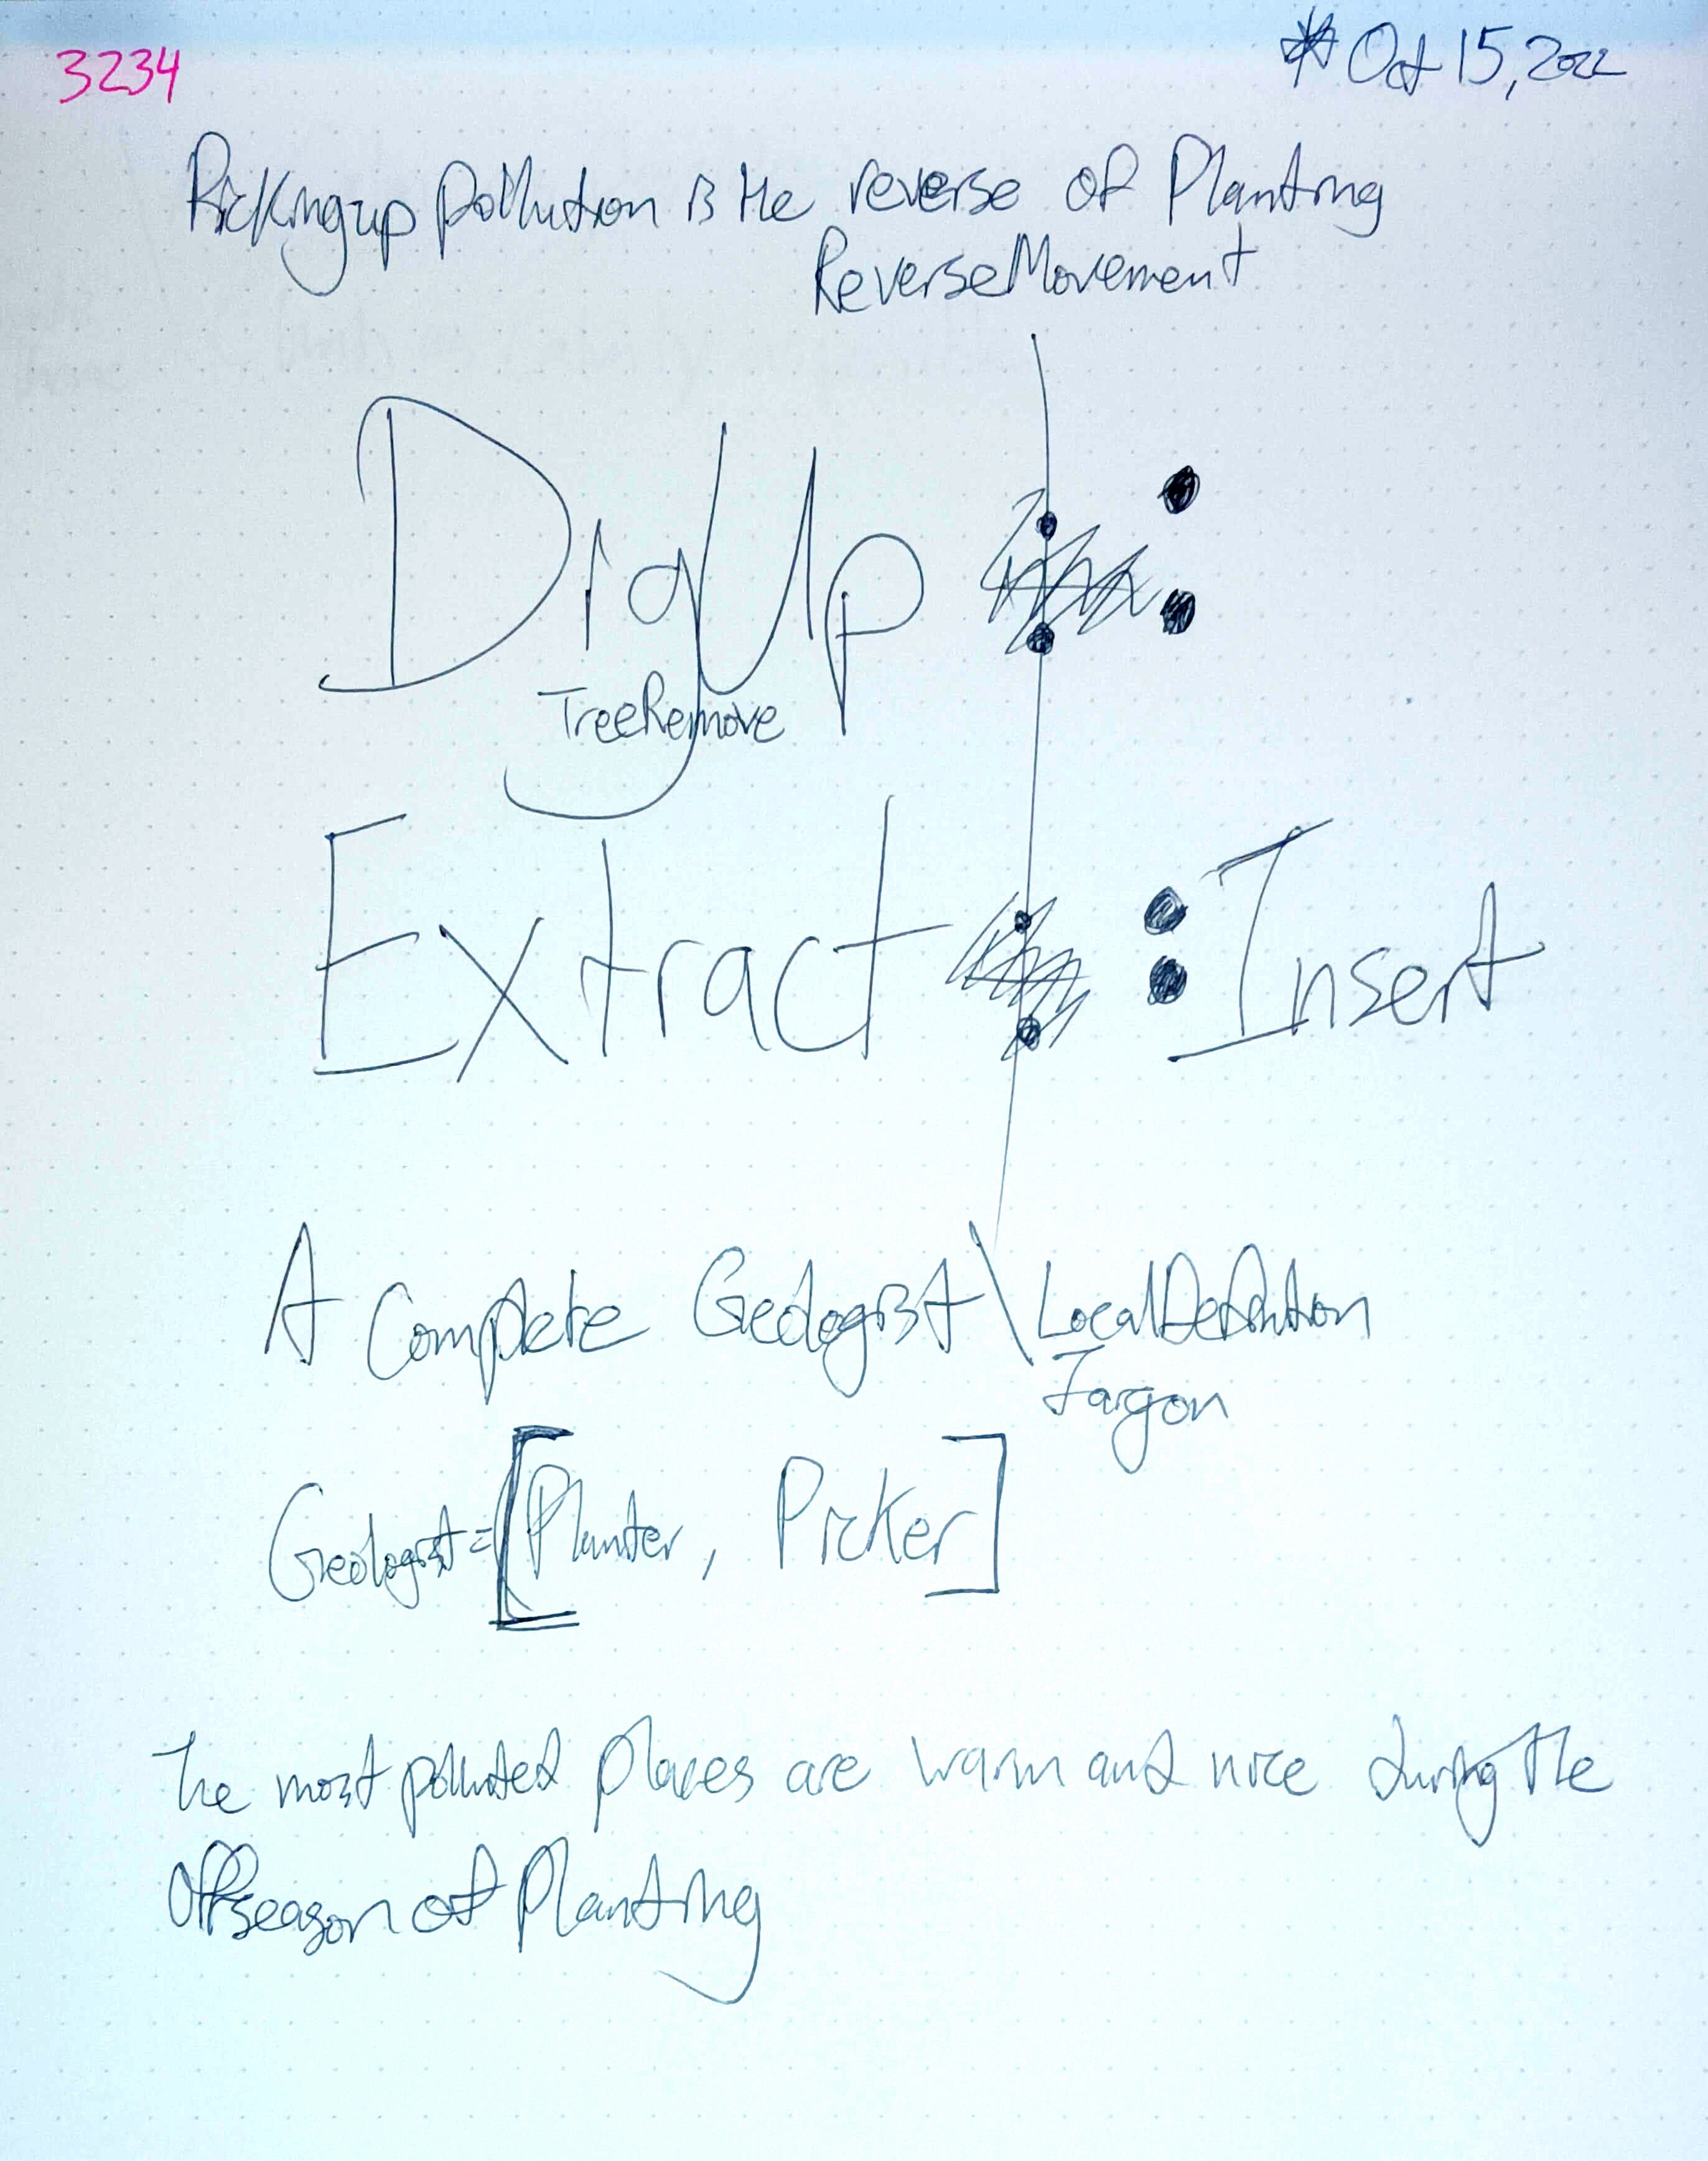 3234
* Oct 15, 2022
Pickingup pollution is the reverse of Planting
ReverseMovement
DigUp :
TreeRemove
Extract : Insert
A Complete Geologist \ LocalDefinition
Jargon
Geologist = [Planter, Picker]
The most polluted places are warm and nice during the
Offseason of Planting